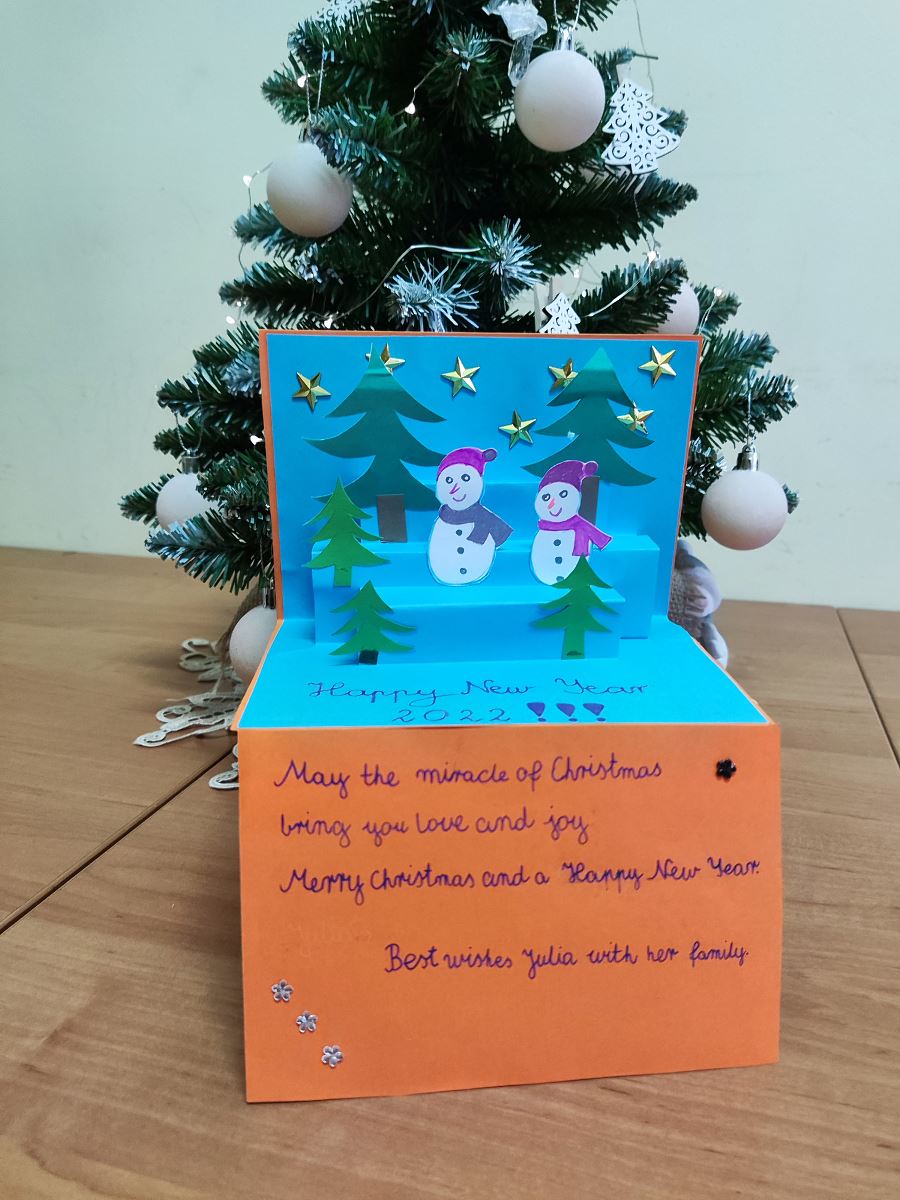 Happy New Year
2022 !!!
May the miracle of Christmas
bring you love and joy
Merry Christmas and a Happy New Year.
Best wishes Julia with her family.